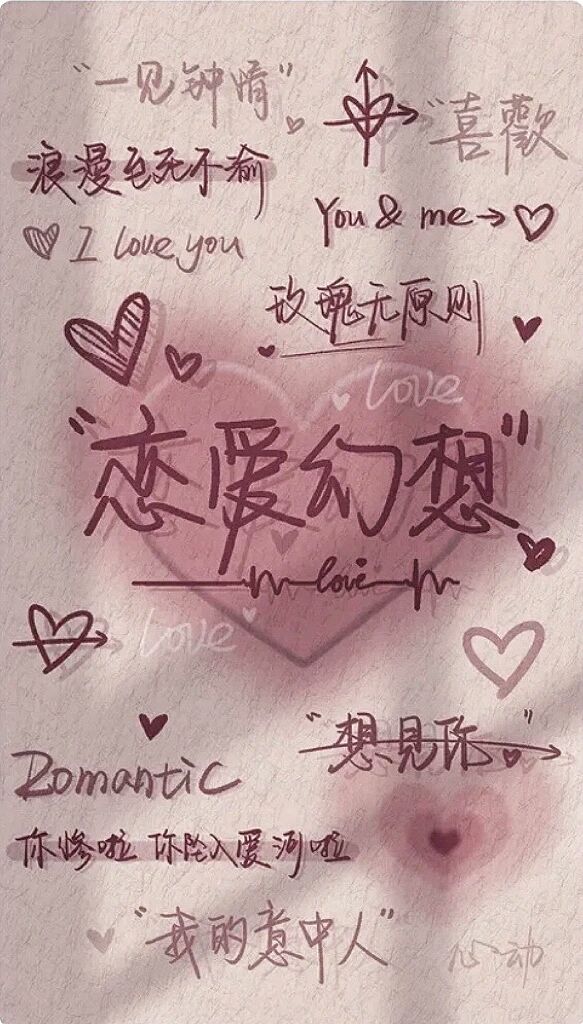 “一见钟情”
“喜歡
浪漫至死不渝
You & me→
I love you
玫瑰无原则
Love
“恋爱幻想”
love
Love
“想见你”
Romantic
你惨啦 你坠入爱河啦
“我的意中人”
心动